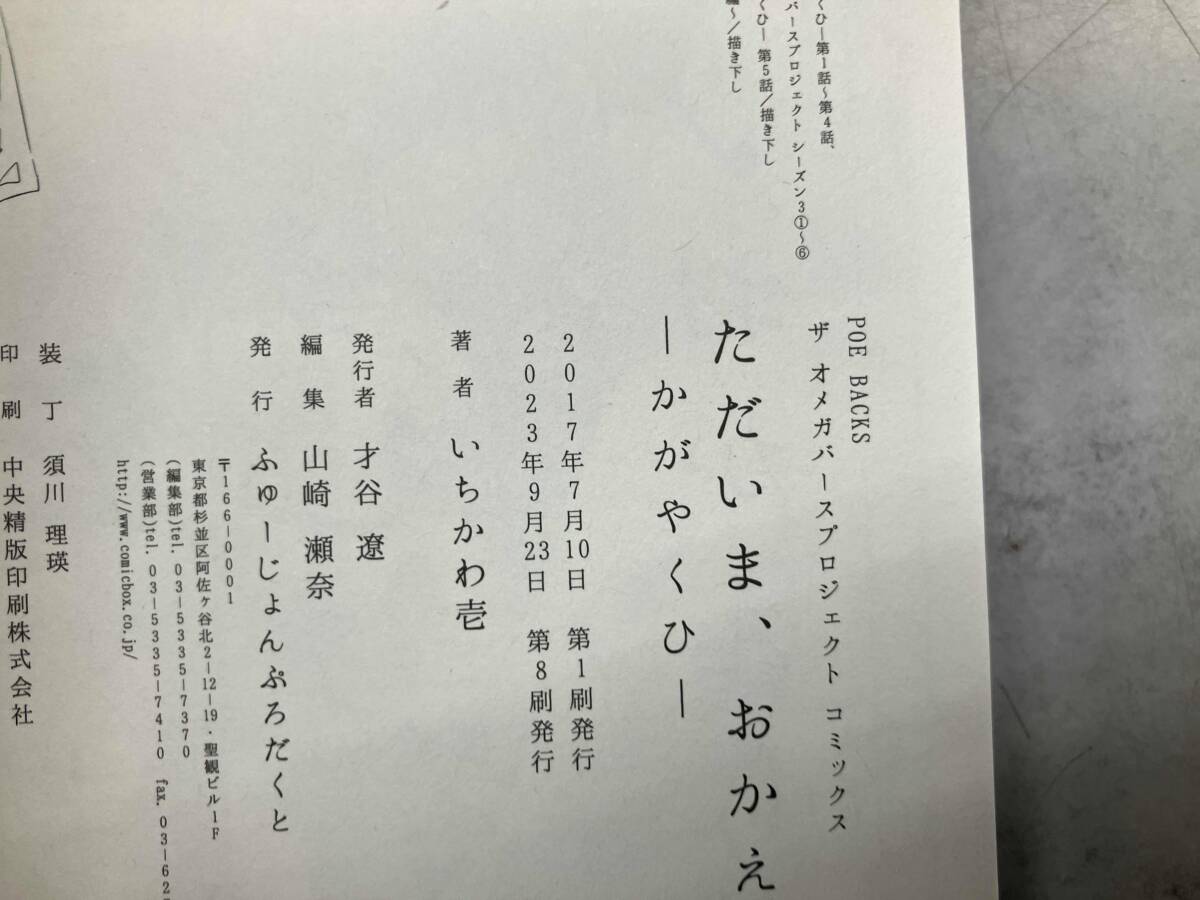 くひー第1話～第4話、
バースプロジェクト シーズン3①～⑥
くひー 第5話/描き下し
編～/描き下し
POE BACKS
ザ オメガバースプロジェクト コミックス
ただいま、おかえ
―かがやくひ―
2017年7月10日 第1刷発行
2023年9月23日 第8刷発行
著者 いちかわ壱
発行者 才谷 遼
編集 山崎 瀬奈
発行 ふゅーじょんぷろだくと
〒166-0001
東京都杉並区阿佐ヶ谷北2-12-19・聖観ビル1F
(編集部)tel. 03-5335-7370
(営業部)tel. 03-5335-7410 fax. 03-62
http://www.comicbox.co.jp/
装丁 須川 理瑛
印刷 中央精版印刷株式会社